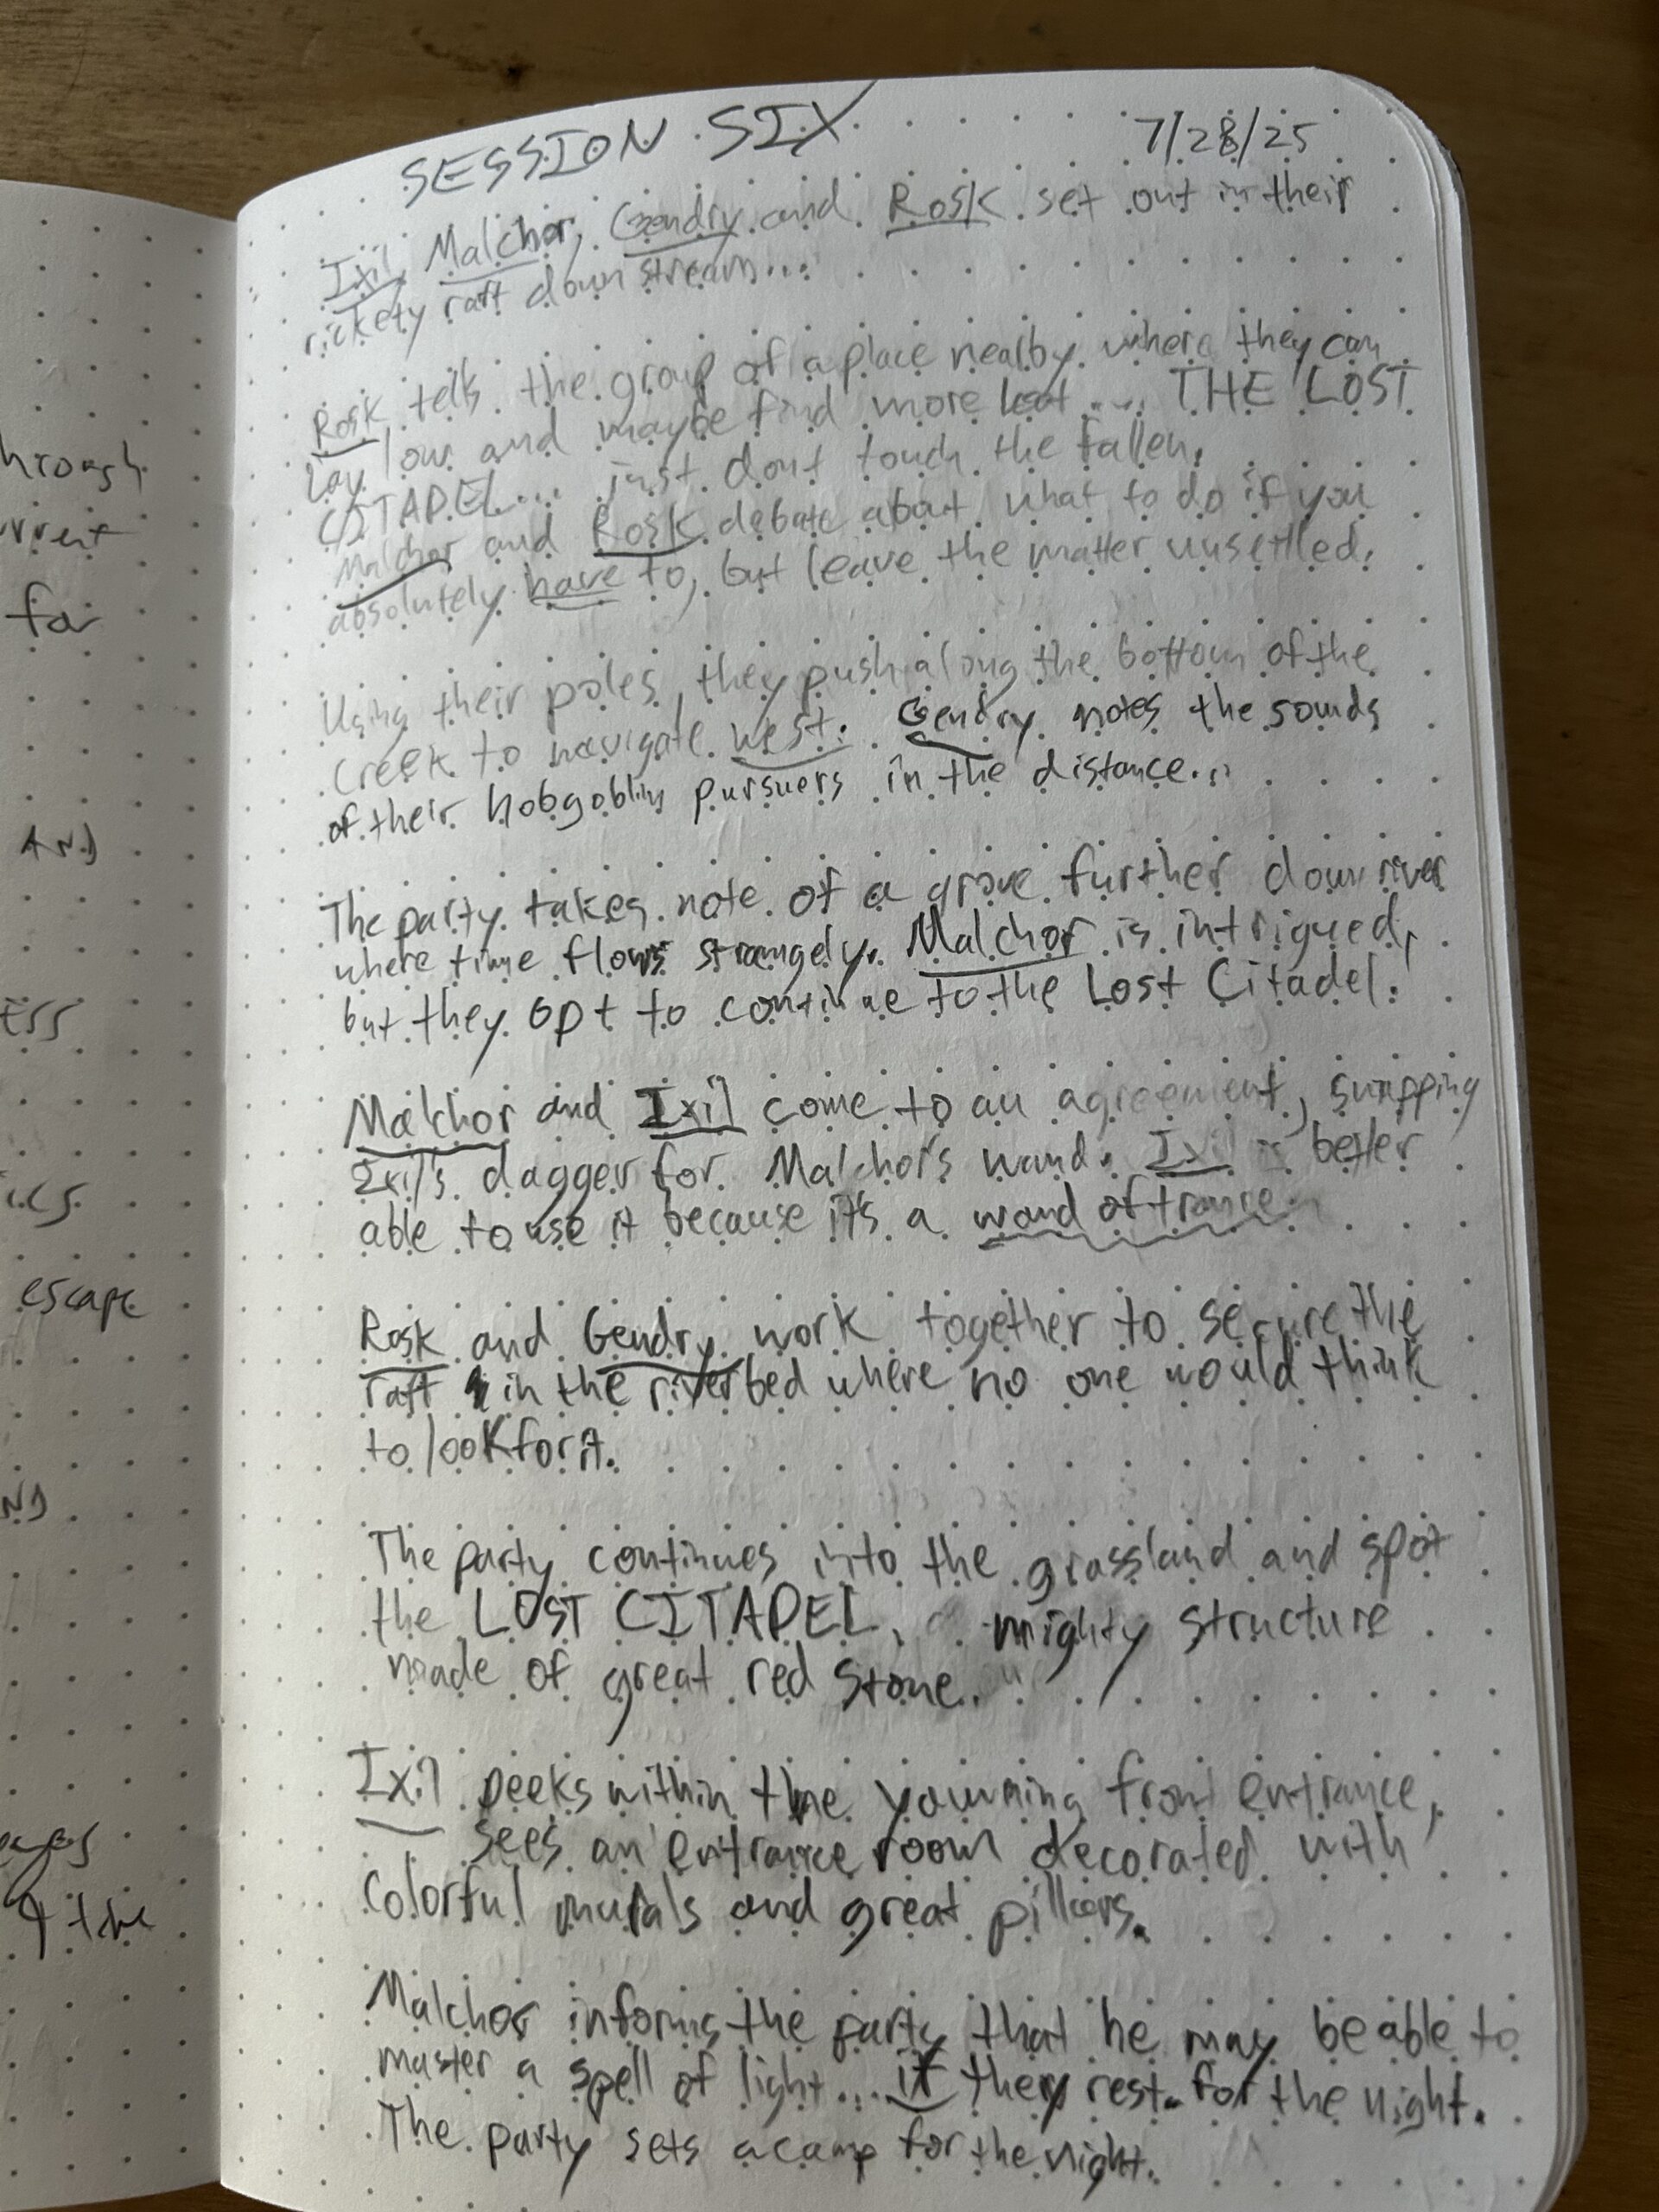 hrough
urrent
for
AND
ESS
ics
escape
AND
ages
g the
SESSION SIX 7/28/25
Ixil, Malchor, Gendry and Rosk set out in their
rickety raft down stream...
Rosk tells the group of a place nearby where they can
lay low and maybe find more loot... THE LOST
CITADEL... just dont touch the fallen.
Malchor and Rosk debate about what to do if you
absolutely have to, but leave the matter unsettled.
Using their poles, they push along the bottom of the
creek to navigate west. Gendry notes the sounds
of their hobgoblin pursuers in the distance...
The party takes note of a grove further down river
where time flows strangely. Malchor is intrigued,
but they opt to continue to the Lost Citadel.
Malchor and Ixil come to an agreement, swapping
Ixil's dagger for Malchor's wand. Ixil is better
able to use it because it's a wand of trance.
Rosk and Gendry work together to secure the
raft in the riverbed where no one would think
to look for it.
The party continues into the grassland and spot
the LOST CITADEL, a mighty structure
made of great red stone.
Ixil peeks within the yawning front entrance,
sees an entrance room decorated with
colorful murals and great pillars.
Malchor informs the party that he may be able to
master a spell of light... if they rest for the night.
The party sets a camp for the night.